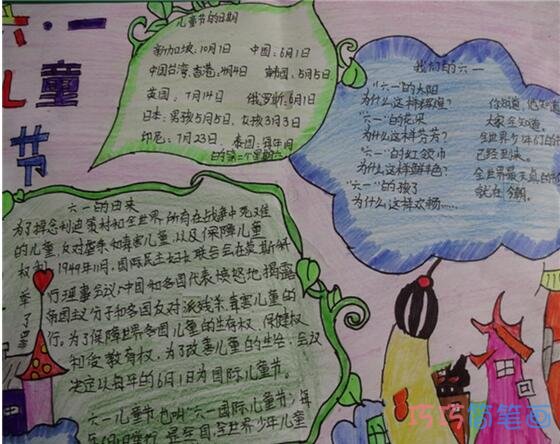 六·一
儿童
节
儿童节的日期
新加坡:10月1日 中国:6月1日
中国台湾、香港:4月4日 韩国:5月5日
英国:7月14日 俄罗斯:6月1日
日本:男孩5月5日、女孩3月3日
印尼:7月23日、泰国:每年1月
的第二个星期六
我们的六一
"六一"的太阳
为什么这样辉煌?
"六一"的花朵
为什么这样芬芳?
"六一"的红领巾
为什么这样鲜丰色?
"六一"的孩子
为什么,这样欢畅……
你知道,他知
大家全知道。
全世界少年们的
已经到来。
全世界最天真的
就在今朝。
六一的由来
为了悼念利迪策村和全世界所有在战争中死难
的儿童,反对虐杀和毒害儿童,以及保障儿童
权利,1949年11月,国际民主妇女联合会在莫斯科
举行理事会议,中国和各国代表愤怒地揭露
了帝国主义分子和各国反动派残杀、毒害儿童的
罪行。为了保障世界各国儿童的生存权、保健权
和受教育权,为了改善儿童的生活,会议
决定以每年的6月1日为国际儿童节。
六一儿童节也叫"六一国际儿童节",每
年6月1日举行,是全国、全世界少年儿童
巧巧简笔画